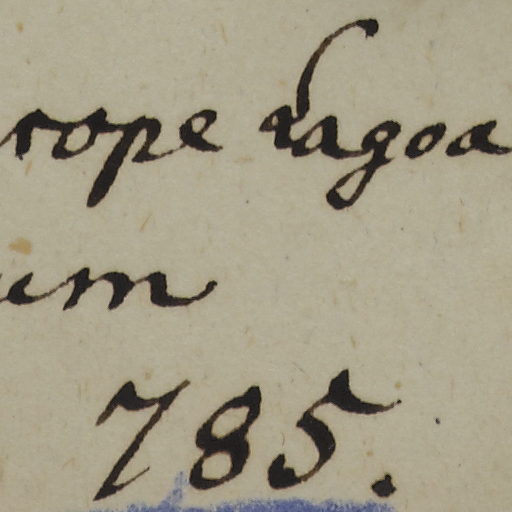 rope Lagoa
um
785.